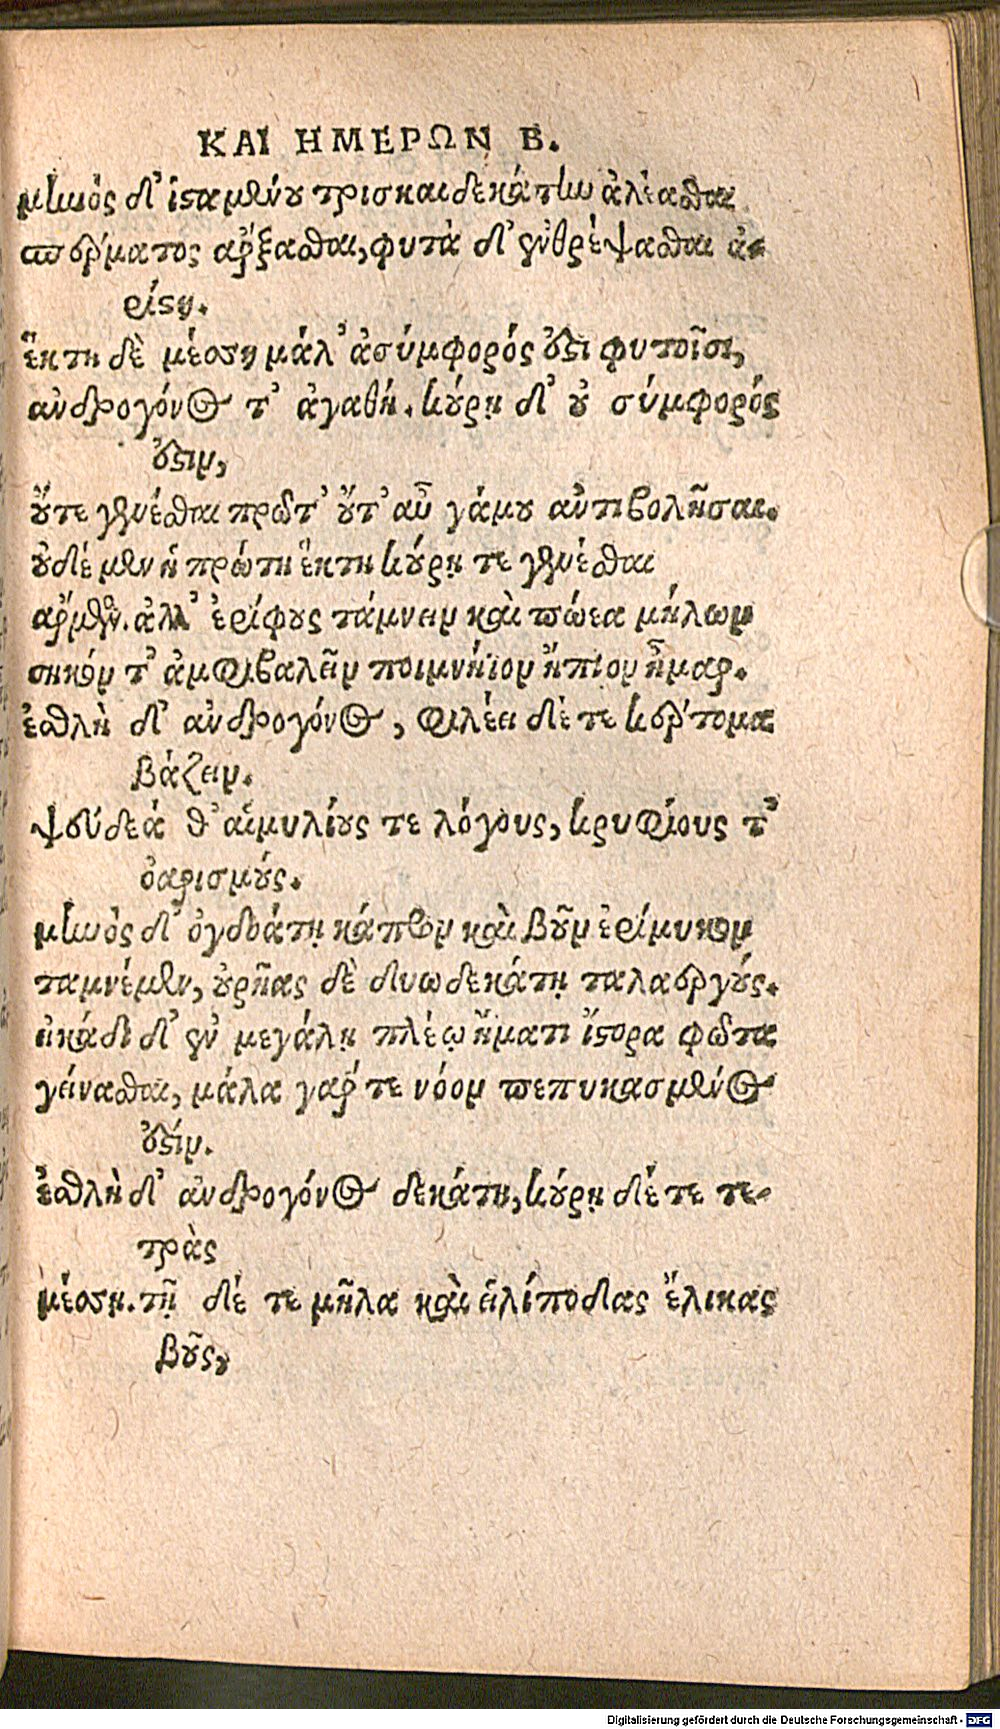 ΚΑΙ ΗΜΕΡΩΝ Β.
μηνὸς δ' ἱσταμένου τρισκαιδεκάτην ἀλέασθαι
σπέρματος ἄρξασθαι, φυτὰ δ' ἐνθρέψασθαι ἀ-
ρίστη.
ἕκτη δὲ μέσση μάλ' ἀσύμφορός ἐστι φυτοῖσι,
ἀνδρογόνος τ' ἀγαθή. κούρῃ δ' οὐ σύμφορός
ἐστιν,
οὔτε γενέσθαι πρῶτ' οὔτ' αὖ γάμου ἀντιβολῆσαι.
οὐδὲ μὲν ἡ πρώτη ἕκτη κούρῃ τε γενέσθαι
ἄρμενον. ἀλλ' ἐρίφους τάμνειν καὶ πώεα μήλων
σηκόν τ' ἀμφιβαλεῖν ποιμνήϊον ἤπιον ἦμαρ.
ἐσθλὴ δ' ἀνδρογόνος, φιλέει δέ τε κέρτομα
βάζειν.
ψεύδεά θ' αἱμυλίους τε λόγους, κρυφίους τ'
ὀαρισμούς.
μηνὸς δ' ὀγδοάτῃ κάπρον καὶ βοῦν ἐρίμυκον
ταμνέμεν, οὐρῆας δὲ δυωδεκάτῃ ταλαεργούς.
εἰκάδι δ' ἐν μεγάλῃ πλέῳ ἤματι ἵστορα φῶτα
γείνασθαι, μάλα γάρ τε νόον πεπυκασμένος
ἐστίν.
ἐσθλὴ δ' ἀνδρογόνος δεκάτη, κούρῃ δέ τε τε-
τρὰς
μέσση. τῇ δέ τε μῆλα καὶ εἰλίποδας ἕλικας
βοῦς,
Digitalisierung gefördert durch die Deutsche Forschungsgemeinschaft - DFG